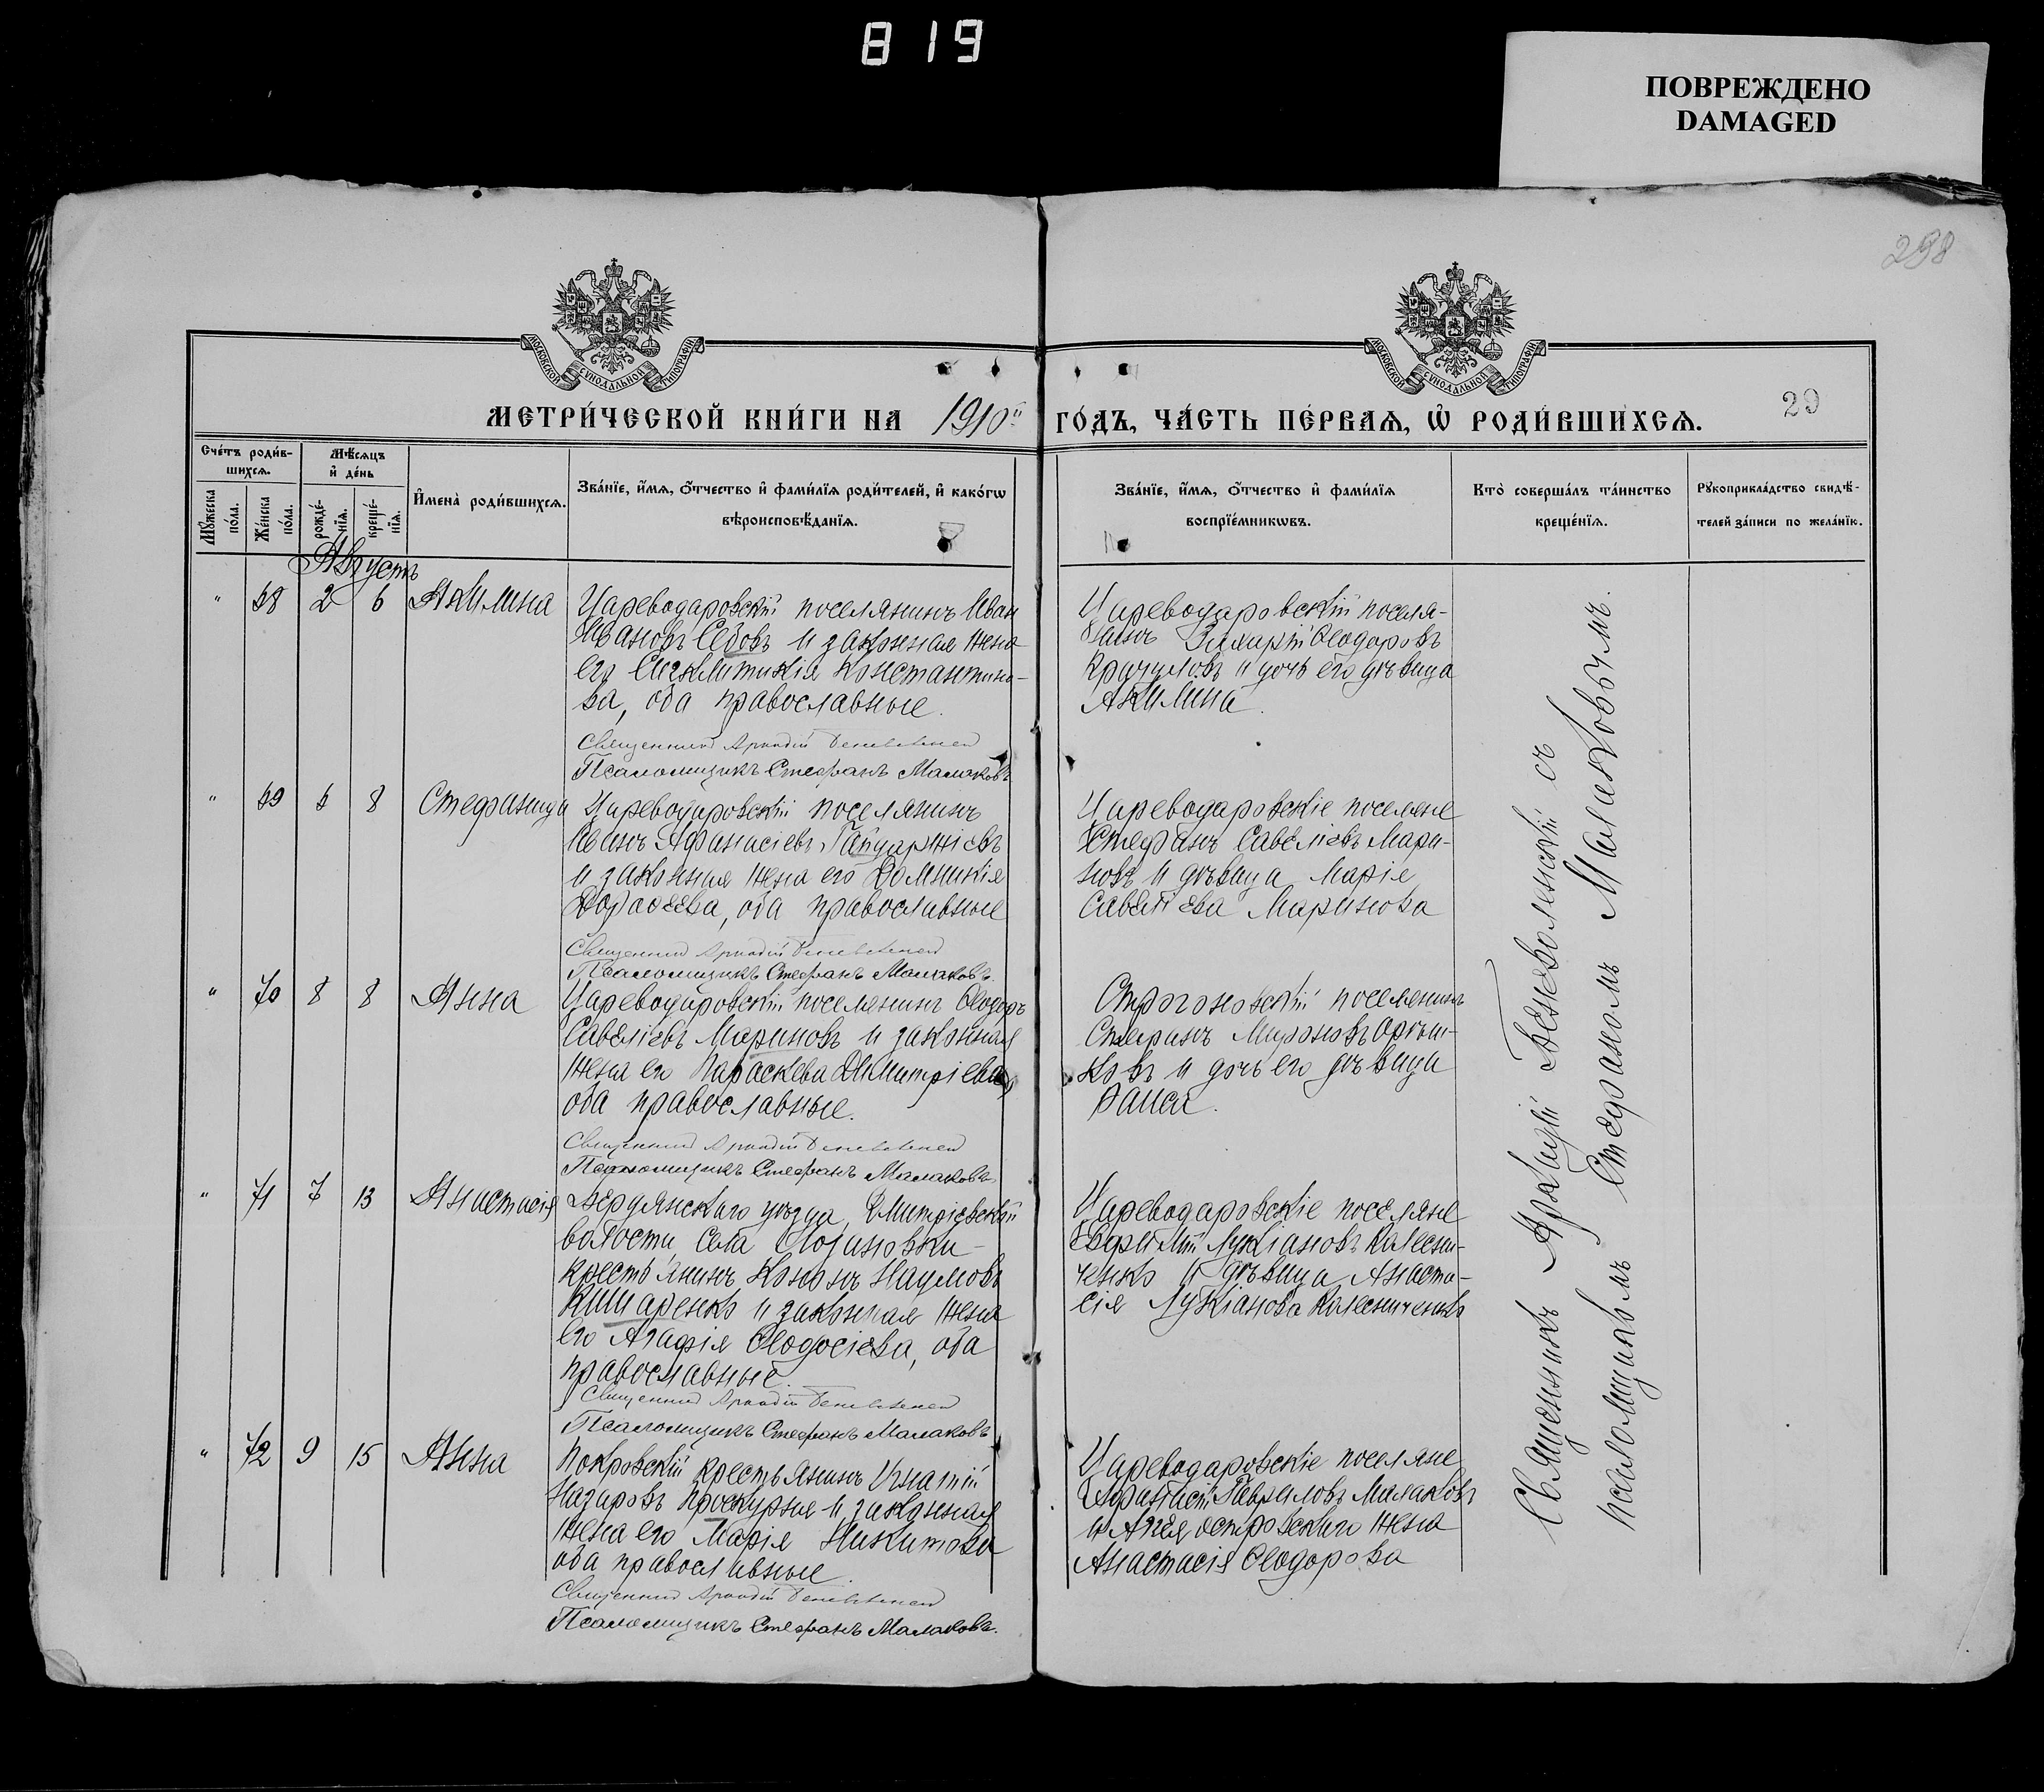 819
ПОВРЕЖДЕНО
DAMAGED
298
МОСКОВСКОЙ СѴНОДАЛЬНОЙ ТИПОГРАФІИ
МОСКОВСКОЙ СѴНОДАЛЬНОЙ ТИПОГРАФІИ
МЕТРИ́ЧЕСКОЙ КНИ́ГИ НА 1910й ГО́ДЪ, ЧА́СТЬ ПЕ́РВАѦ, Ѡ҆ РОДИ́ВШИХСѦ.
29
Сче́тъ роди́в-
шихсѧ.
Мѣ́сѧцъ
и҆ де́нь
Мꙋ́жеска
по́ла.
Же́нска
по́ла.
рожде́-
нїѧ.
креще́-
нїѧ.
И҆мена̀ роди́вшихсѧ.
Зва́нїе, и҆́мѧ, ѻ҆́тчество и҆ фами́лїѧ роди́телей, и҆ како́гѡ
вѣроисповѣ́данїѧ.
Зва́нїе, и҆́мѧ, ѻ҆́тчество и҆ фами́лїѧ
воспрїе́мникѡвъ.
Кто̀ соверша́лъ та́инство
креще́нїѧ.
Рꙋкоприкла́дство свидѣ́-
телей за́писи по жела́нїю.
Августъ
" 68 2 6 Акилина
Цареводаровскій поселянинъ Иван
Ивановъ Седовъ и законная жена
его Сигклитикія Константино-
ва, оба православные.
Священникъ Аркадій Беневоленский
Псаломщикъ Стефанъ Малаковъ
Цареводаровскій поселя-
нинъ Захарій Ѳеодоровъ
Кричуловъ и дочь его дѣвица
Акилина.
" 69 6 8 Стефанида
Цареводаровскій поселянинъ
Иванъ Афанасіевъ Гайдаржіевъ
и законная жена его Домникія
Дораѳеева, оба православные
Священникъ Аркадій Беневоленский
Псаломщикъ Стефанъ Малаковъ.
Цареводаровскіе поселяне
Стефанъ Савеліевъ Мари-
новъ и дѣвица Марія
Савеліева Маринова
" 70 8 8 Анна
Цареводаровскій поселянинъ Ѳеодоръ
Савеліевъ Мариновъ и законная
жена его Параскева Димитріева,
оба православные.
Священникъ Аркадій Беневоленский
Псаломщикъ Стефанъ Малаковъ.
Строгоновскій поселянинъ
Стефанъ Мироновъ
ковъ и дочь его дѣвица
" 71 7 13 Анастасія
Бердянскаго уѣзда, Дмитріевской
волости села
крестьянинъ Кононъ Наумовъ
Кишаренко и законная жена
его Агафія Ѳеодосіева, оба
православные.
Священникъ Аркадій Беневоленский
Псаломщикъ Стефанъ Малаковъ
Цареводаровскіе поселяне
Евфимій Лукіановъ Колесни-
ченко и дѣвица Анаста-
сія Лукіанова Колесниченко
" 72 9 15 Анна
Покровскій крестьянинъ Игнатій
Назаровъ Проскурня и законная
жена его Марія Никитова
оба православные.
Священникъ Аркадій Беневоленский
Псаломщикъ Стефанъ Малаковъ.
Цареводаровскіе поселяне
Гавриловъ Малаковъ
жена
Анастасія Ѳеодорова
Священникъ Аркадій Беневоленскій съ
псаломщикомъ Стефаномъ Малаковымъ.